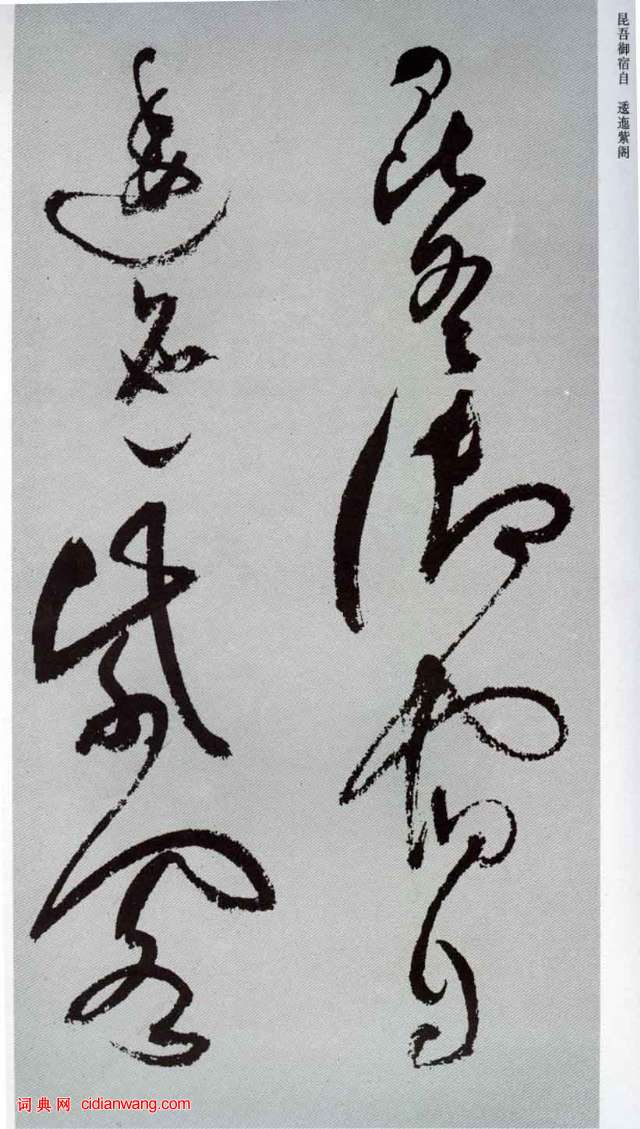 昆吾御宿自 逶迤紫阁
昆吾御宿自
逶迤紫阁
词典网 cidianwang.com